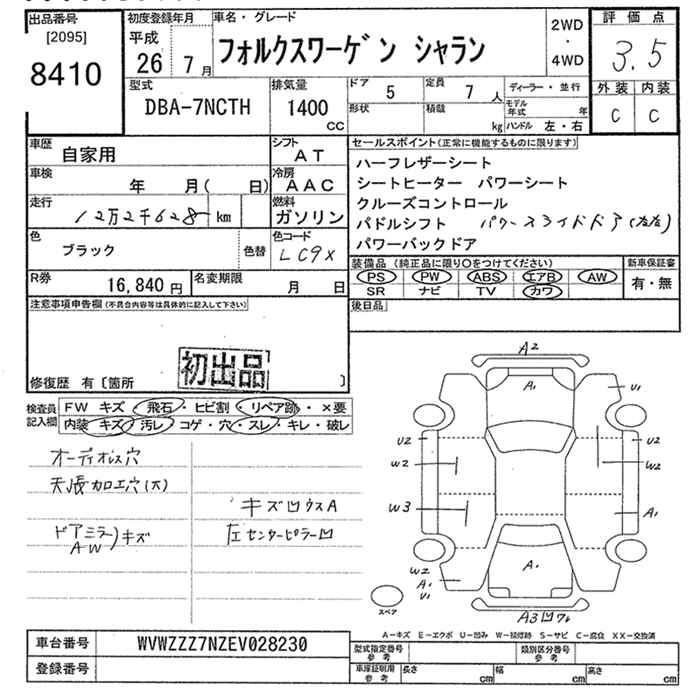 出品番号
[2095]
8410
初度登録年月
平成
26 7月
車名・グレード
フォルクスワーゲン シャラン
2WD
・
4WD
評価点
3.5
外装 内装
C C
型式
DBA-7NCTH
排気量
1400
CC
ドア 5
定員 7人
形状
積載 kg
ディーラー・並行
モデル年式 年
ハンドル 左・右
車歴 自家用
シフト AT
車検 年 月( 日)
冷房 AAC
走行 12万2千628 km
燃料 ガソリン
色 ブラック 色替
色コード LC9X
R券 16,840円
名変期限 月 日
セールスポイント(正常に機能するものに限ります)
ハーフレザーシート
シートヒーター パワーシート
クルーズコントロール
パドルシフト パワースライドドア(左右)
パワーバックドア
装備品(純正品に限り○をつけてください)
新車保証書
PS PW ABS エアB AW
SR ナビ TV カワ
有・無
後日品
注意事項申告欄(不具合内容等は具体的に記入して下さい)
初出品
修復歴 有〔箇所 〕
検査員記入欄
FW キズ・飛石・ヒビ割・リペア跡・×要
内装・キズ・汚レ・コゲ・穴・スレ・キレ・破レ
オーディオレス穴
天張加工穴(大)
キズ凹ウスA
ドアミラー
AW
)キズ
左センターピラー凹
A2
A1
U1
U2
U2
W2
W2
W3
A1
W2
A1
U1
A1
スペア
A3凹ワレ
A-キズ E-エクボ U-凹み W-補修跡 S-サビ C-腐食 XX-交換済
車台番号 WVWZZZ7NZEV028230
登録番号
型式指定番号参考
類別区分番号参考
車庫証明用参考
長さ cm
幅 cm
高さ cm